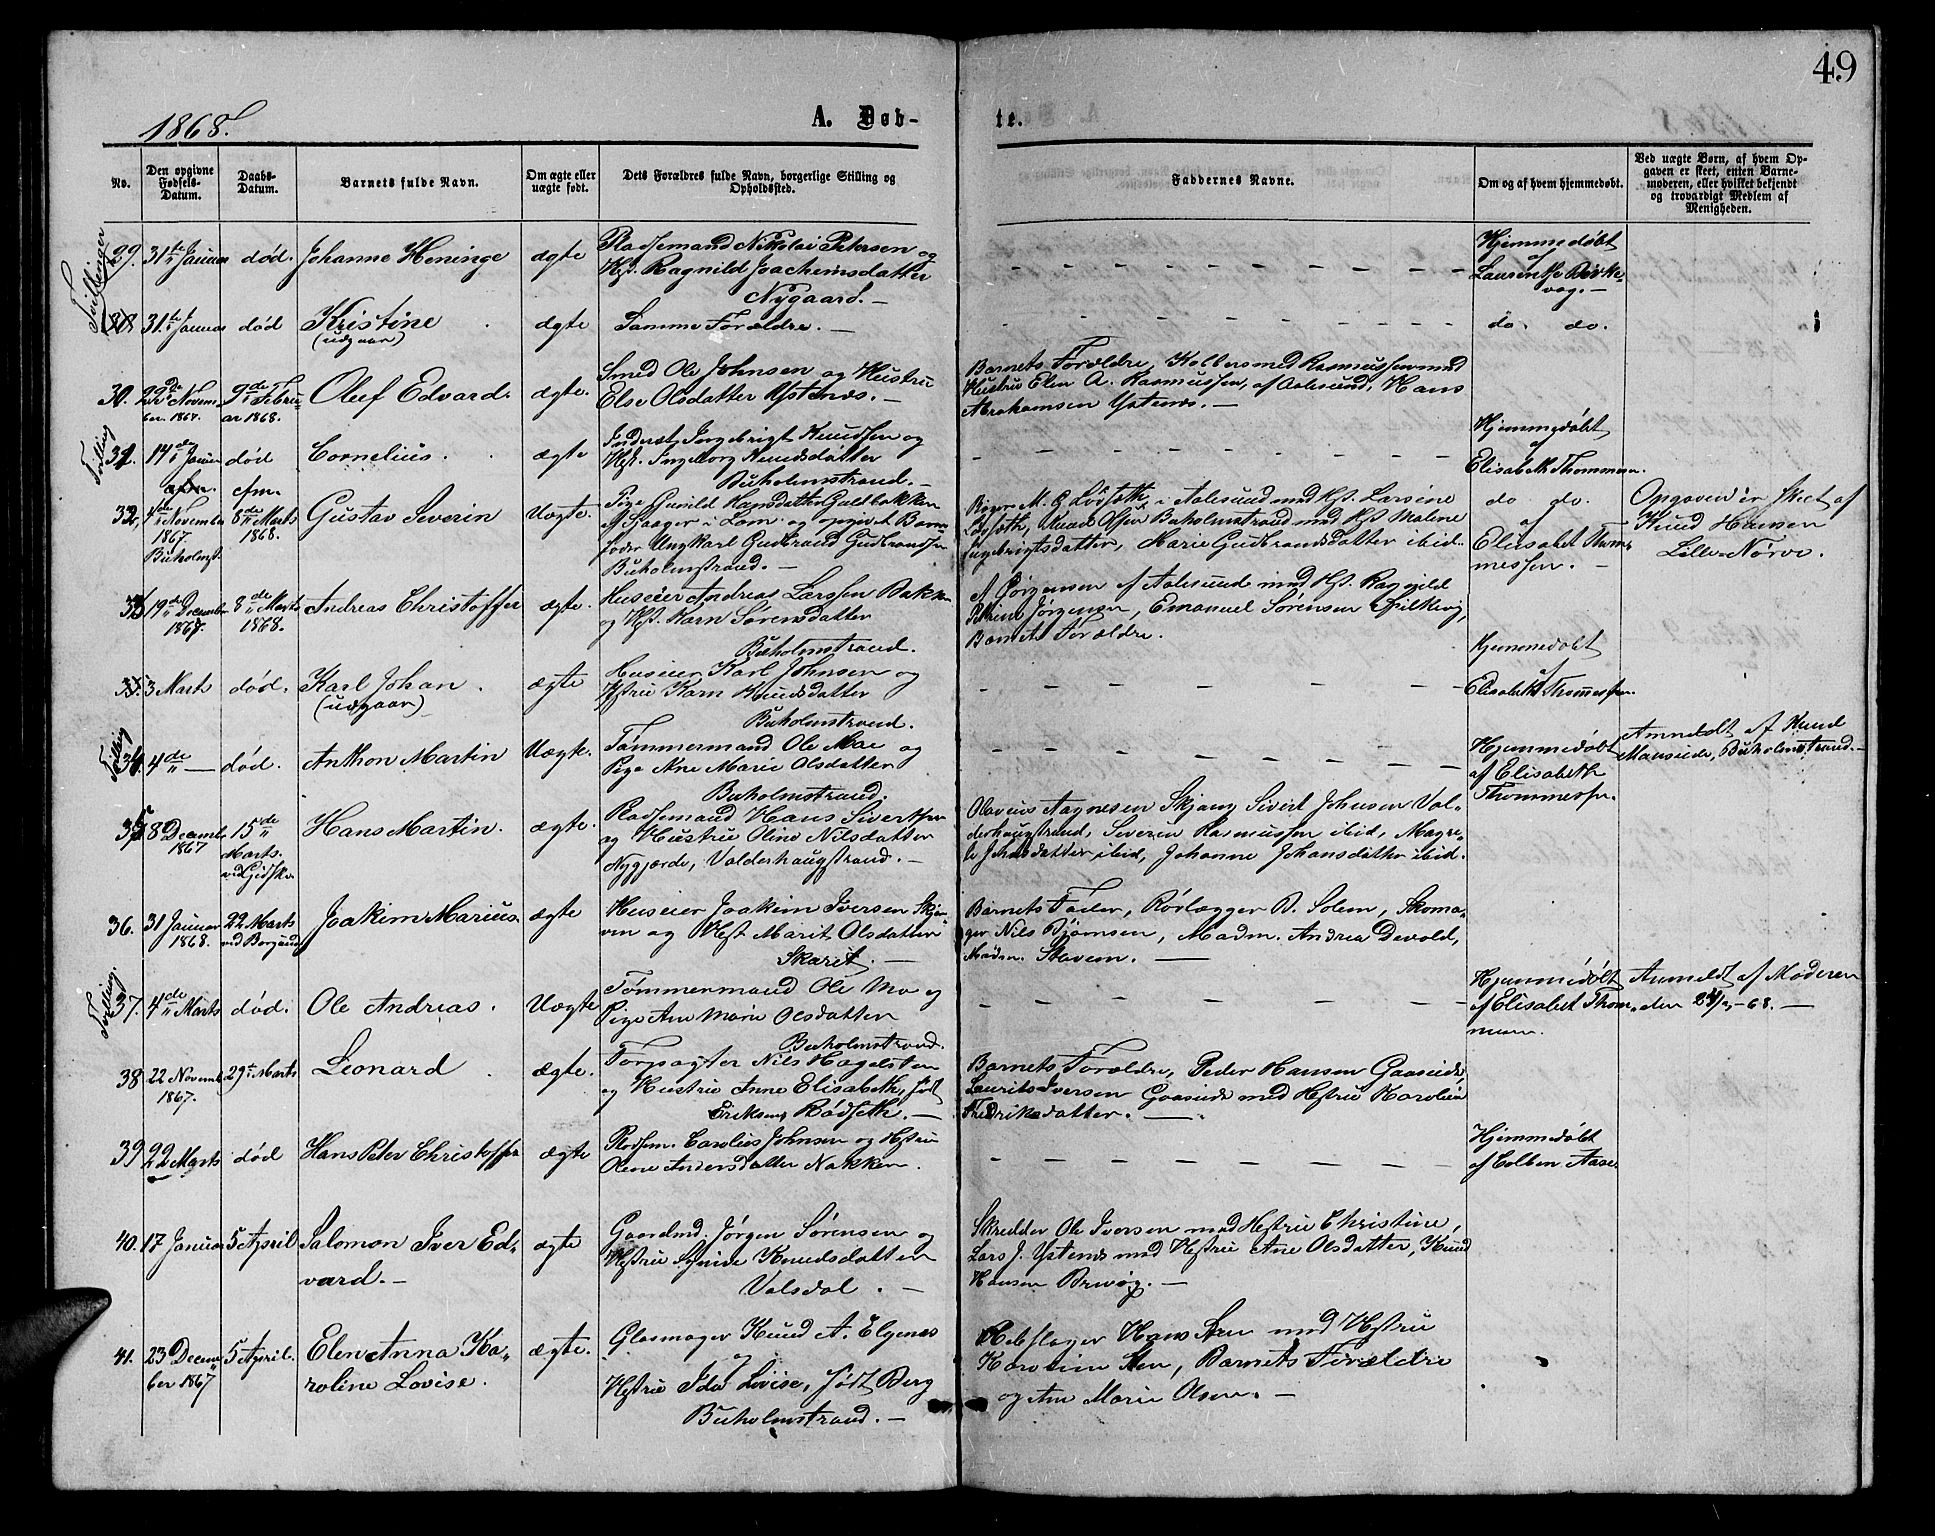 49
1868.
A. Døb-
te.
No.
Den opgivne Fødsels-Datum.
Daabs-Datum.
Barnets fulde Navn.
Om ægte eller uægte født.
Dets Forældres fulde Navn, borgerlige Stilling og Opholdssted.
Faddernes Navne.
Om og af hvem hjemmedøbt.
Ved uægte Børn, af hvem Op-
gaven er skeet, enten Barne-
moderen, eller hvilket bekjendt
og troværdigt Medlem af
Menigheden.
Tvillinger
29. 31te Januar død. Johanne Heninge ægte
Pladsemand Nikolai Petersen og
Hst. Ragnild Joachimsdatter
Nygaard. —
Hjemmedøbt
af
31te Januar død Kristine ægte Samme Forældre. — do. do.
(udgaar)
30. 22de Novem-
ber. 1867.
9de Febru-
ar 1868.
Oluf Edvard. ægte.
Smed Ole Johnsen og Hustru
Else Olsdatter Ystenæs. —
Barnets Forældre, Kobbersmed Rasmussen med
Hustru Elen A. Rasmussen, af Aalesund, Hans
Abrahamsen Ystenæs. —
31. 14de Januar død Cornelius. ægte
Inderst, Ingebrigt Knudsen og
Hst. Ingeborg Knudsdatter
Buholmstrand. —
Hjemmedøbt
af
Elisabeth Thommesen.
32. 4de November
1867
Buholmst.
cfm.
8de Marts
1868.
Gustav Severin Uægte.
Pige Gunild Hansdatter Galdbakken
af i Lom og opgivet Barne-
fader Ungkarl Gudbrand Gudbrandsen
Buholmstrand. —
i Aalesund med Hst. Larsine
Buholmstrand med Hst Maline
Ingebrigtsdatter, Marie Gudbrandsdatter ibid.
do do.
af
Elisabet Thom-
messen. —
Opgaven er skeet af
Knud Hansen
Lille-Nørve.
33. 19de December
1867.
8de Marts
1868.
Andreas Christoffer ægte.
Huseier Andreas Larssen Bakken
og Hst. Karn Sørensdatter
Buholmstrand.
A Jørgensen af Aalesund med Hst. Ragnild
Petrine Jørgensen, Emanuel Sørensen Spilkevig,
Barnets Forældre.
3 Marts død. Karl Johan. ægte
(udgaar)
Huseier Karl Johnsen og
Hstru Karn Knudsdatter
Buholmstrand.
Hjemmedøbt
af
Elisabeth Thommessen.
34. 4de — død. Anthon Martin Uægte.
Tømmermand Ole Moe og
Pige Ane Marie Olsdatter
Buholmstrand.
Hjemmedøbt
af Elisabeth
Thommessen.
Anmeldt af Knud
Buholmstrand. —
35. 8 Decemb.
1867
15de
Marts.
ved Gidske.
Hans Martin. ægte.
Pladsemand Hans Sivertsen
og Hustru Oline Nilsdatter
Nygjærde, Valderhaugstrand. —
Olavius Aagnesen Skjang Sivert Johnsen Val-
derhaugstrand, Severin Rasmussen ibid, Magre-
te ibid, Johanne Johansdatter ibid.
36. 31 Januar
1868.
22 Marts
ved Borgund
Joakim Marius. ægte
Huseier Joakim Iversen
og Hst Marit Olsdatter
Skaret. —
Barnets Fader, Rørlægger D. Solem, Skoma-
ger Nils Bjørnsen, Madm. Andrea Devold,
Madm. Stavem. —
Tvilling.
37. 4de Marts død. Ole Andreas. Uægte
Tømmermand Ole Mo og
Pige Ane Marie Olsdatter
Buholmstrand.
Hjemmedøbt
af Elisabet Thom-
messen.
Anmeldt af Moderen
38 22 Novemb.
1867.
29de Marts Leonard ægte.
Nils Hagelsten
og Hustru Anne Elisabeth, født
Eriksens Rødseth. —
Barnets Forældre, Peder Hansen Gaaseide,
Laurits Iversen Gaaseide med Hstru Karoline
Fredriksdatter. —
39 22 Marts død Hans Peter Christoffer ægte
Pladsem. Carolius Johnsen og Hstru
Olene Andersdatter Nakken.
Hjemmedøbt
af Colben Aase.
40. 17 Januar 5 April Salomon Iver Ed-
vard. —
ægte
Gaardmd. Jørgen Sørensen og
Hstru Synive Knudsdatter
Valsdal. —
Skredder Ole Iversen med Hstru Christine,
Lars J. Ystenæs med Hstru Ane Olsdatter, Knud
Hansen
41. 23 Decem-
ber 1867
5 April. Elen Anna Ka-
roline Lovise.
ægte.
Glasmager Knud A. Elgenæs
og
Hstru Ida Lovise, født Berg
Buholmstrand. —
Rebslager Hans Steen med Hstru
Karoline Sten, Barnets Forældre
og Ane Marie Olsen. —